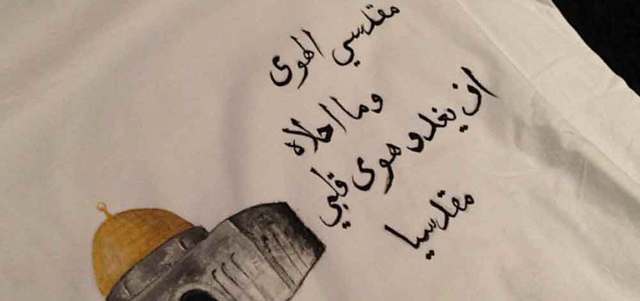 مقدسي الهوى
وما احلاه
ان يغدو هوى قلبي
مقدسيا